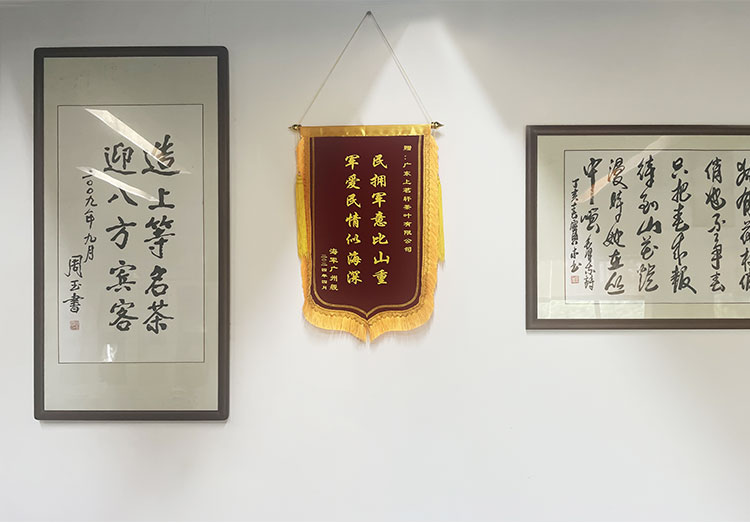 造上等名茶
迎八方賓客
二〇〇九年九月
周玉書
赠：广东上茗轩茶叶有限公司
民拥军意比山重
军爱民情似海深
海军广州舰
犹有花枝俏
俏也不争春
只把春来报
待到山花烂
漫时她在丛
中笑